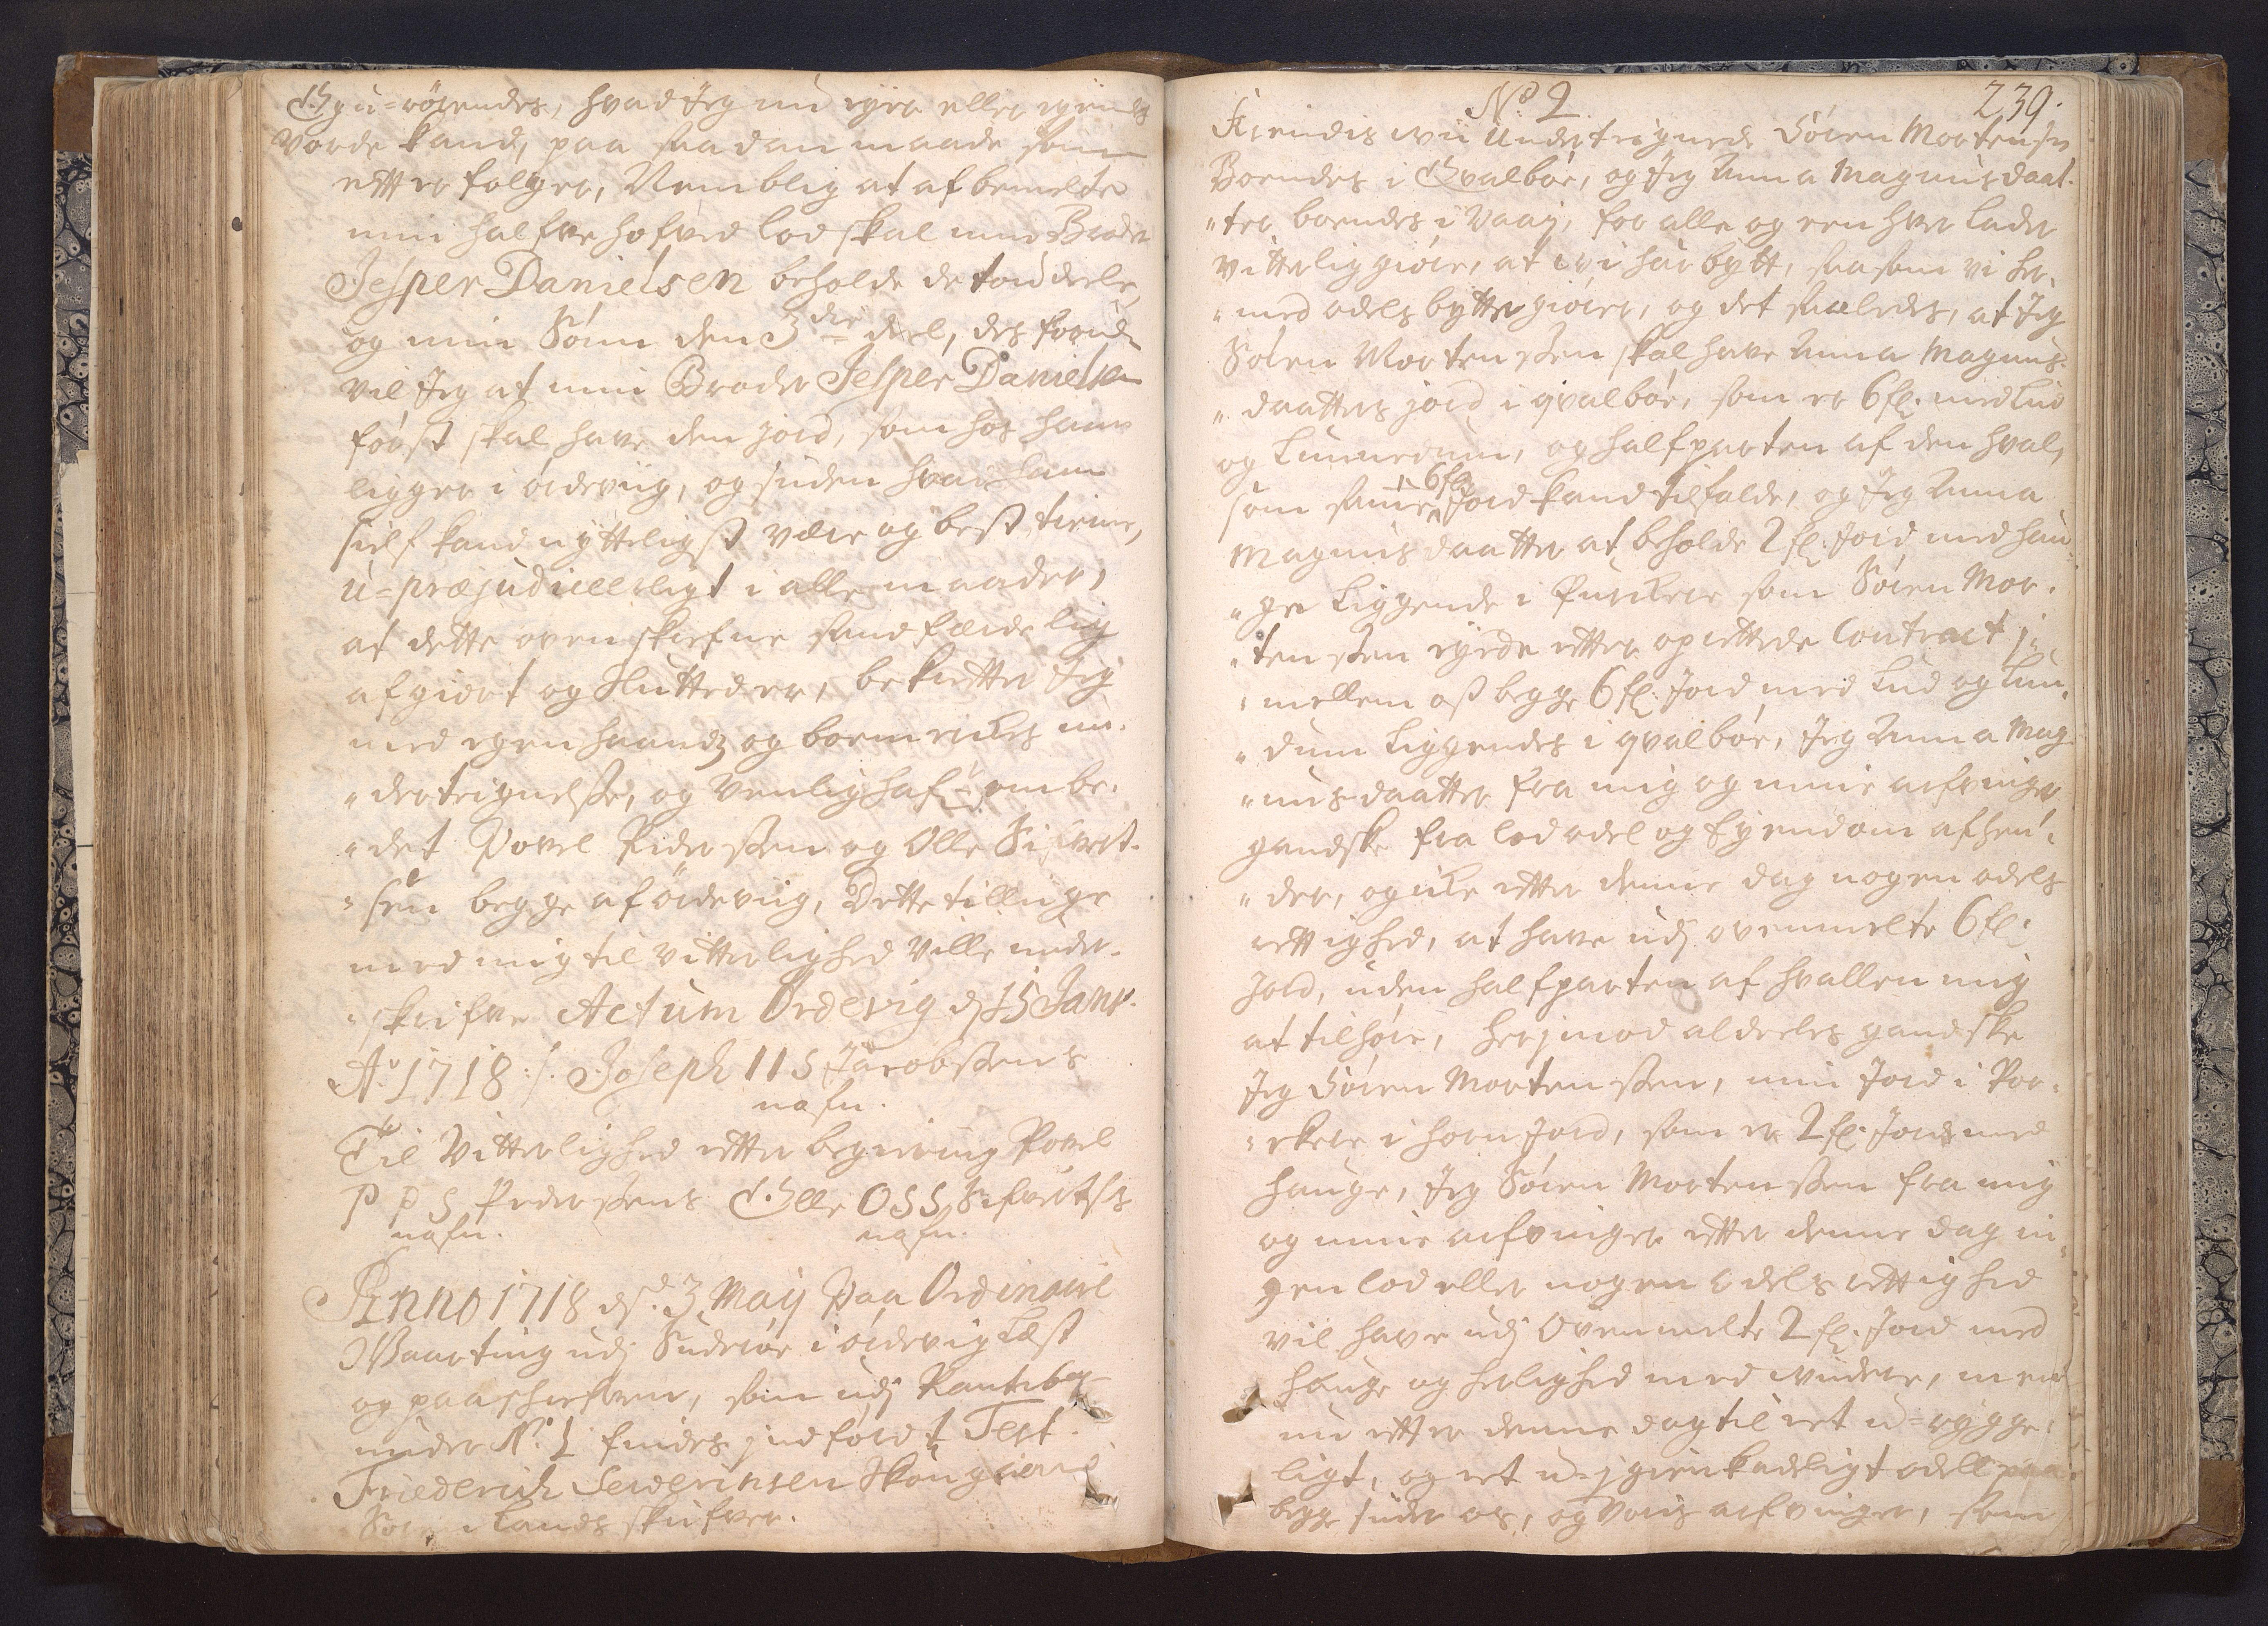 og u-rörendes, hvad Jeg nu eyer eller eyendes
vorde kand, paa saadan maade som
efter følger, Nemblig at af bemelte
min halfve hofved lod skal min Broder
Jesper Danielsen beholde de toe deele,
og min Sönn den 3die deel, des foruden
vil Jeg at min Broder Jesper Danielsen
först skal have den jord, som hos ham
ligger i ördeviig, og siden hvor ham
sielf kand nÿtteligst være og best tiene,
u-præjudicerligt i alle maader,
at dette oven skrefne stand færdelig
afgiort og Sluttet er, bekrefter Jeg
med egen haand og boemerkes un-
"derteignelsse, og venlig hafr ombe-
"det Povel Pederssen og Olle Sifvert-
"sen begge af ördeviig, Dette tillige
med mig til vitterlighed ville under-
"skrifve Actum Ördevig d 15 Janv.
Ao 1718 :/: Joseph I I S Jacobssens
nafn.
Til Vitterlighed efter begiering Povel
P P S Pederssens Olle O S S Sifvertss
nafn. nafn.
Anno 1718 d. 3 Maÿ paa Ordinaire
Vaarting udj Suderöe i ördevig Læst
og paaskrefven, som udj Pantebog
under No 1 findes jndförd t Test
Friederich Severinsen Kongl.
Sor i Lands skrifver.
No 2. 239.
Kiendis wii Undertegnede Sören Mortensen
Boendes i Qvalböe, og Jeg Anna Magnusdaat-
"ter boendes i Vaag, for alle og een hver lader
vitterlig giöre, at wi har bytt, saasom vi her-
"med odels bytte giörer, og det saaledes, at Jeg
Sören Mortenssen skal have Anna Magnus-
"daatters jord i qvalböe, som er 6 fl. med Lud
og Lunnedum, og halfparten af den hval,
som samme 6 fl. Jord kand tilfalde, og Jeg Anna
Magnusdaatter at beholde 2 fl. Jord med hau-
"ger Liggende i Porkere som Sören Mor-
"tenssen eyede efter oprettede Contract j-
"mellem oss begge 6 fl. Jord med Lud og Lun-
"dum Liggendes i qvalböe, Jeg Anna Mag-
"nusdaatter fra mig og mine arfvinger
gandske fra lod odel og Eyendom afhen-
"der, og icke efter denne dag nogen odels
rettighed, at have udj ovenmelte 6 fl.
Jord, uden halfparten af hvallen mig
at tilhöre, herjmod aldeeles gandske
Jeg Sören Mortenssen, min Jord i Por-
"ckere i horn Jord, som er 2 fl. Jord med
hauge, Jeg Sören Mortenssen fra mig
og mine arfvinger efter denne dag in-
gen lod eller nogen odels rettighed
vil have udj Ovenmelte 2 fl. Jord med
hauge og herlighed med windere, mens
nu efter denne dag til ret u-rygge-
ligt, og ret u-jgienkaldeligt odell paa
begge sider os, og voris arfvinger, som